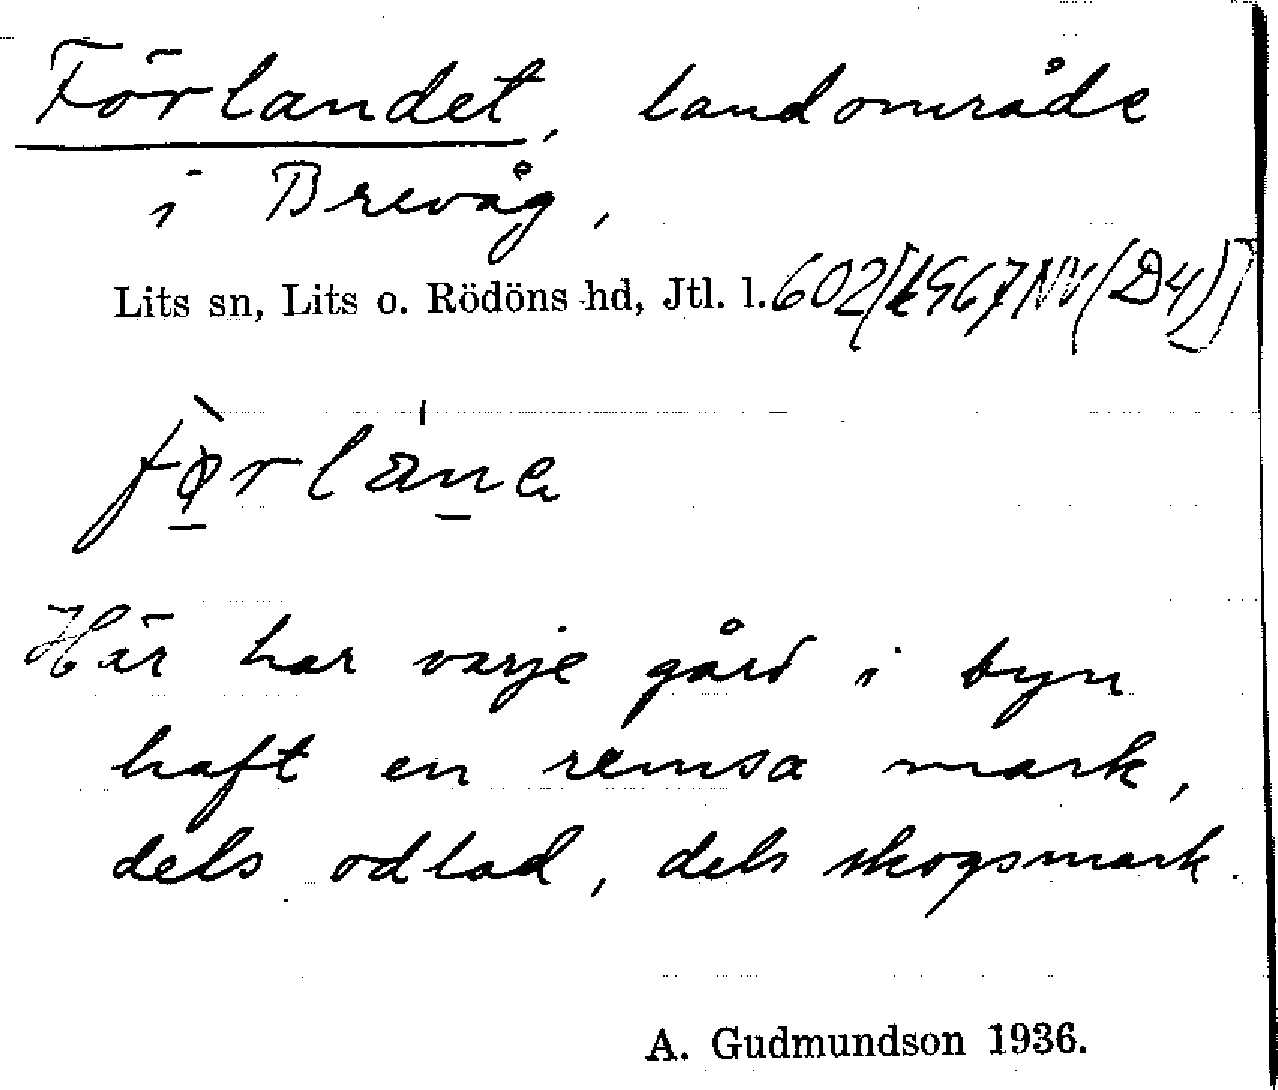 Förlandet, landområde
i Brevåg,
Lits sn, Lits o. Rödöns hd, Jtl. l. 602/[1967NV(D4)]
Här har varje gård i byn
haft en remsa mark,
dels odlad, dels skogsmark.
A. Gudmundson 1936.